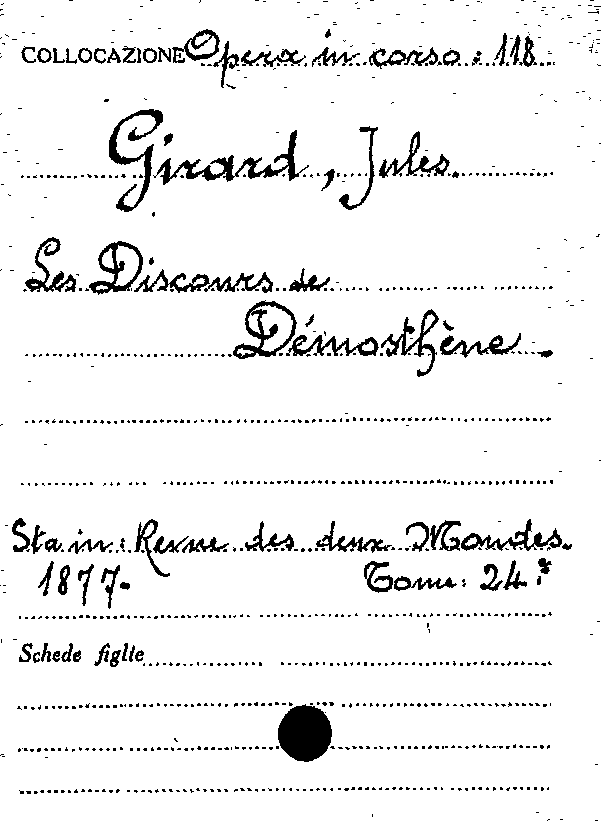 COLLOCAZIONE Opera in corso: 118
Girard, Jules.
Les Discours de
Démosthène.
Sta in: Revue des deux Mondes.
1877. Tome: 24.
Schede figlie